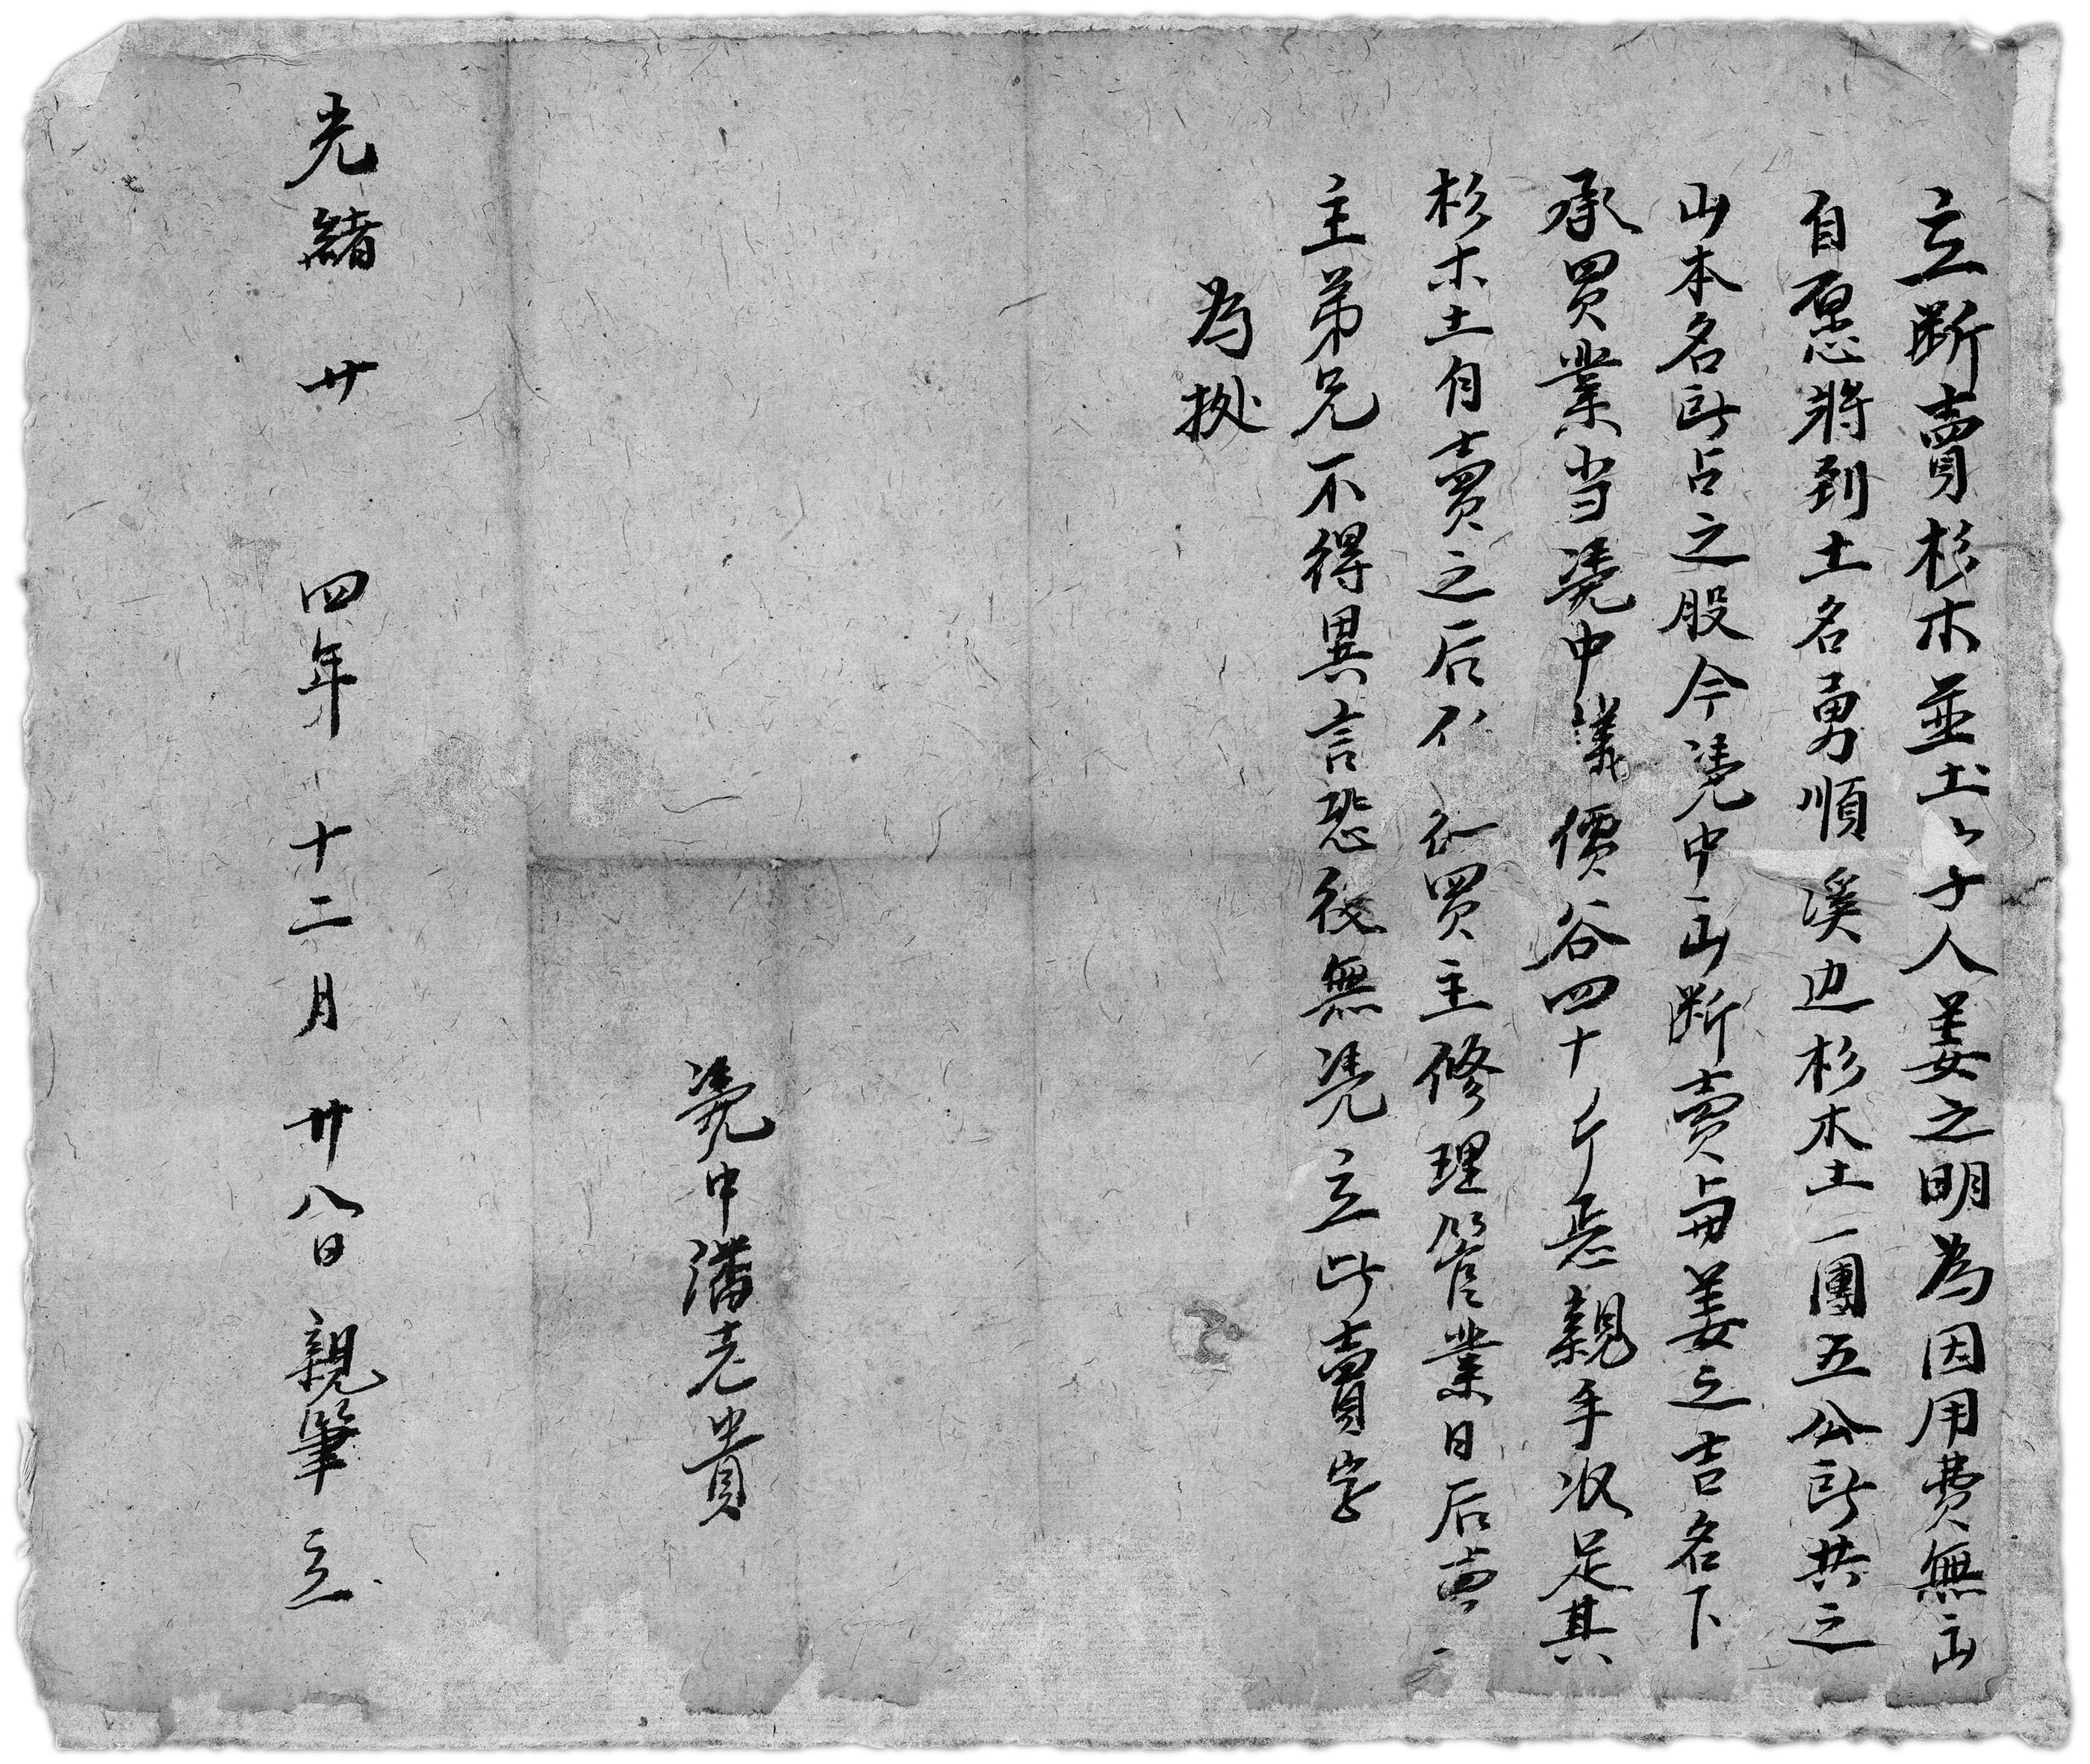 立断賣杉木並土〻子人姜之明為因用費無出
自愿將到土名勇順溪边杉木土一團五公所共之
山本名所占之股今凴中出断賣与姜之吉名下
承買業当凴中議價谷四十斤悉親手收足其
杉木土自賣之后不 買主修理管業日后賣
主弟兄不得異言恐後無凴立此賣字
為拠
凴中潘老貴
光緒廿四年十二月廿八日親筆立